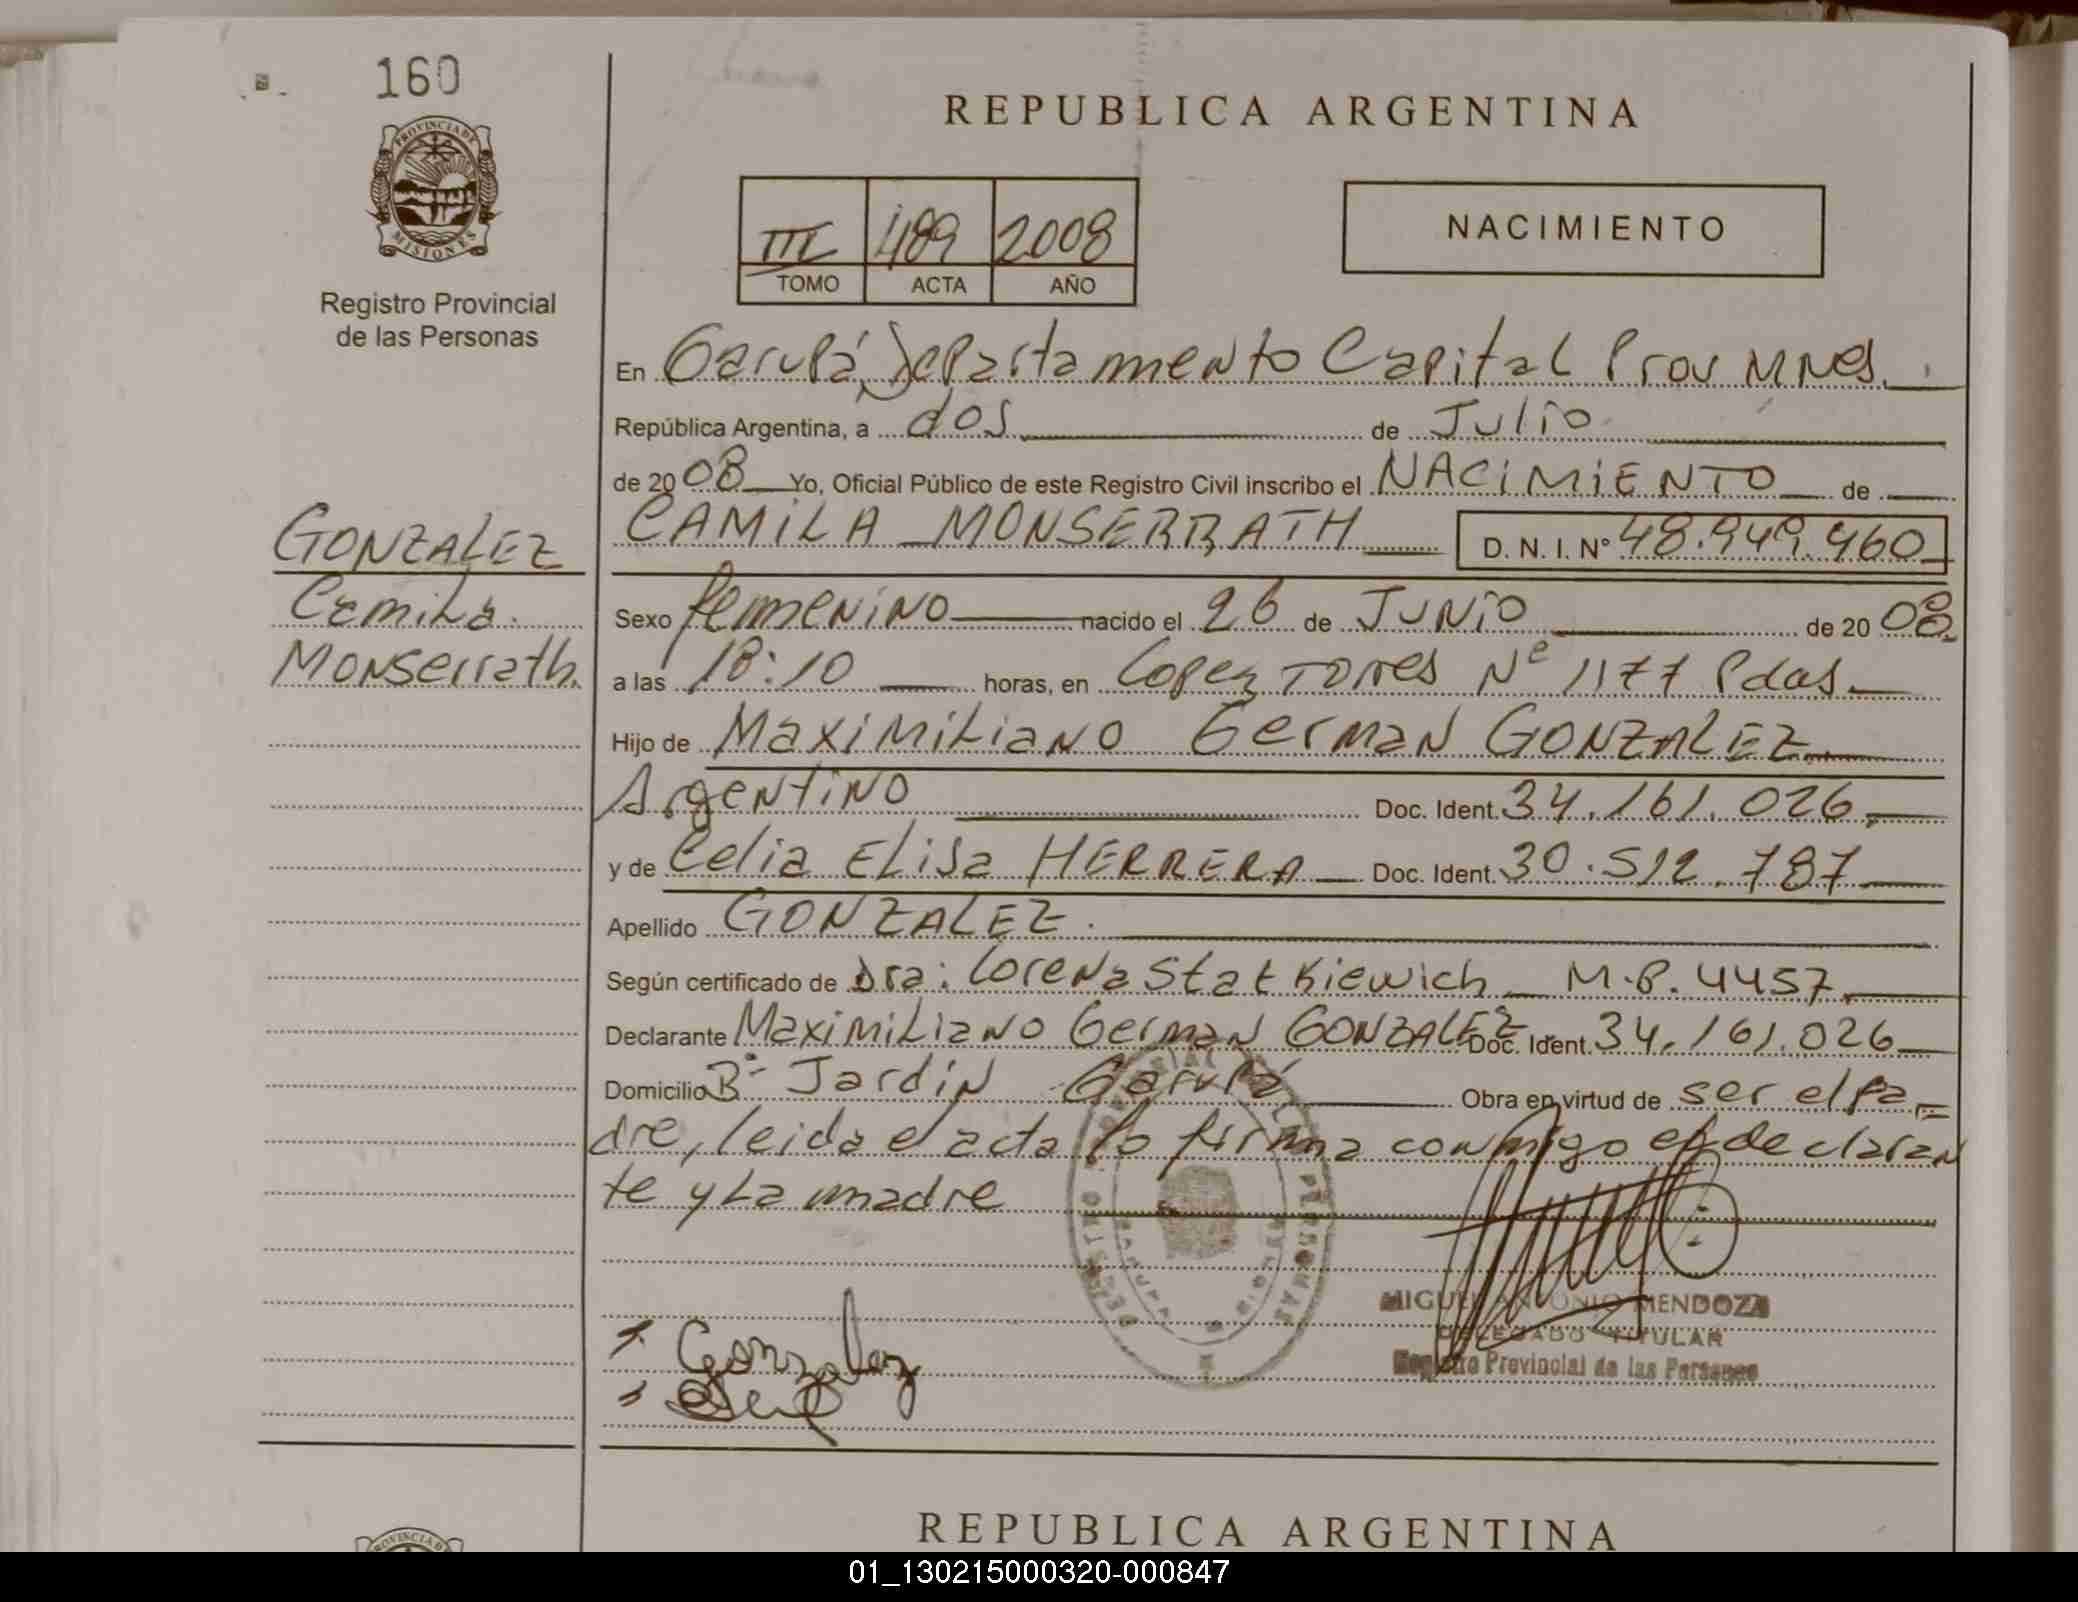 160
PROVINCIA DE
MISIONES
Registro Provincial
de las Personas
REPUBLICA ARGENTINA
III 489 2008
TOMO ACTA AÑO
NACIMIENTO
En Garupá, Departamento Capital Prov MNes.
República Argentina, a dos de Julio
de 2008 Yo, Oficial Público de este Registro Civil inscribo el NACIMIENTO de
CAMILA MONSERRATH D. N. I. Nº 48.949.460
GONZALEZ
Camila
Monserrath.
Sexo femenino nacido el 26 de JUNIO de 2008
a las 18:10 horas, en Lopez Torres Nº 1177 Pdas.
Hijo de Maximiliano German GONZALEZ
Argentino Doc. Ident. 34.161.026
y de Celia Elisa HERRERA Doc. Ident. 30.512.787
Apellido GONZALEZ.
Según certificado de Dra: Lorena Statkiewich M.P. 4457
Declarante Maximiliano German GONZALEZ Doc. Ident. 34.161.026
Domicilio Bº Jardin Garupá Obra en virtud de ser el pa=
dre, leida el acta lo firma conmigo el declaran
te y La madre
Gonzalez
MIGUEL ANTONIO MENDOZA
DELEGADO TITULAR
Registro Provincial de las Personas
REPUBLICA ARGENTINA
01_130215000320-000847